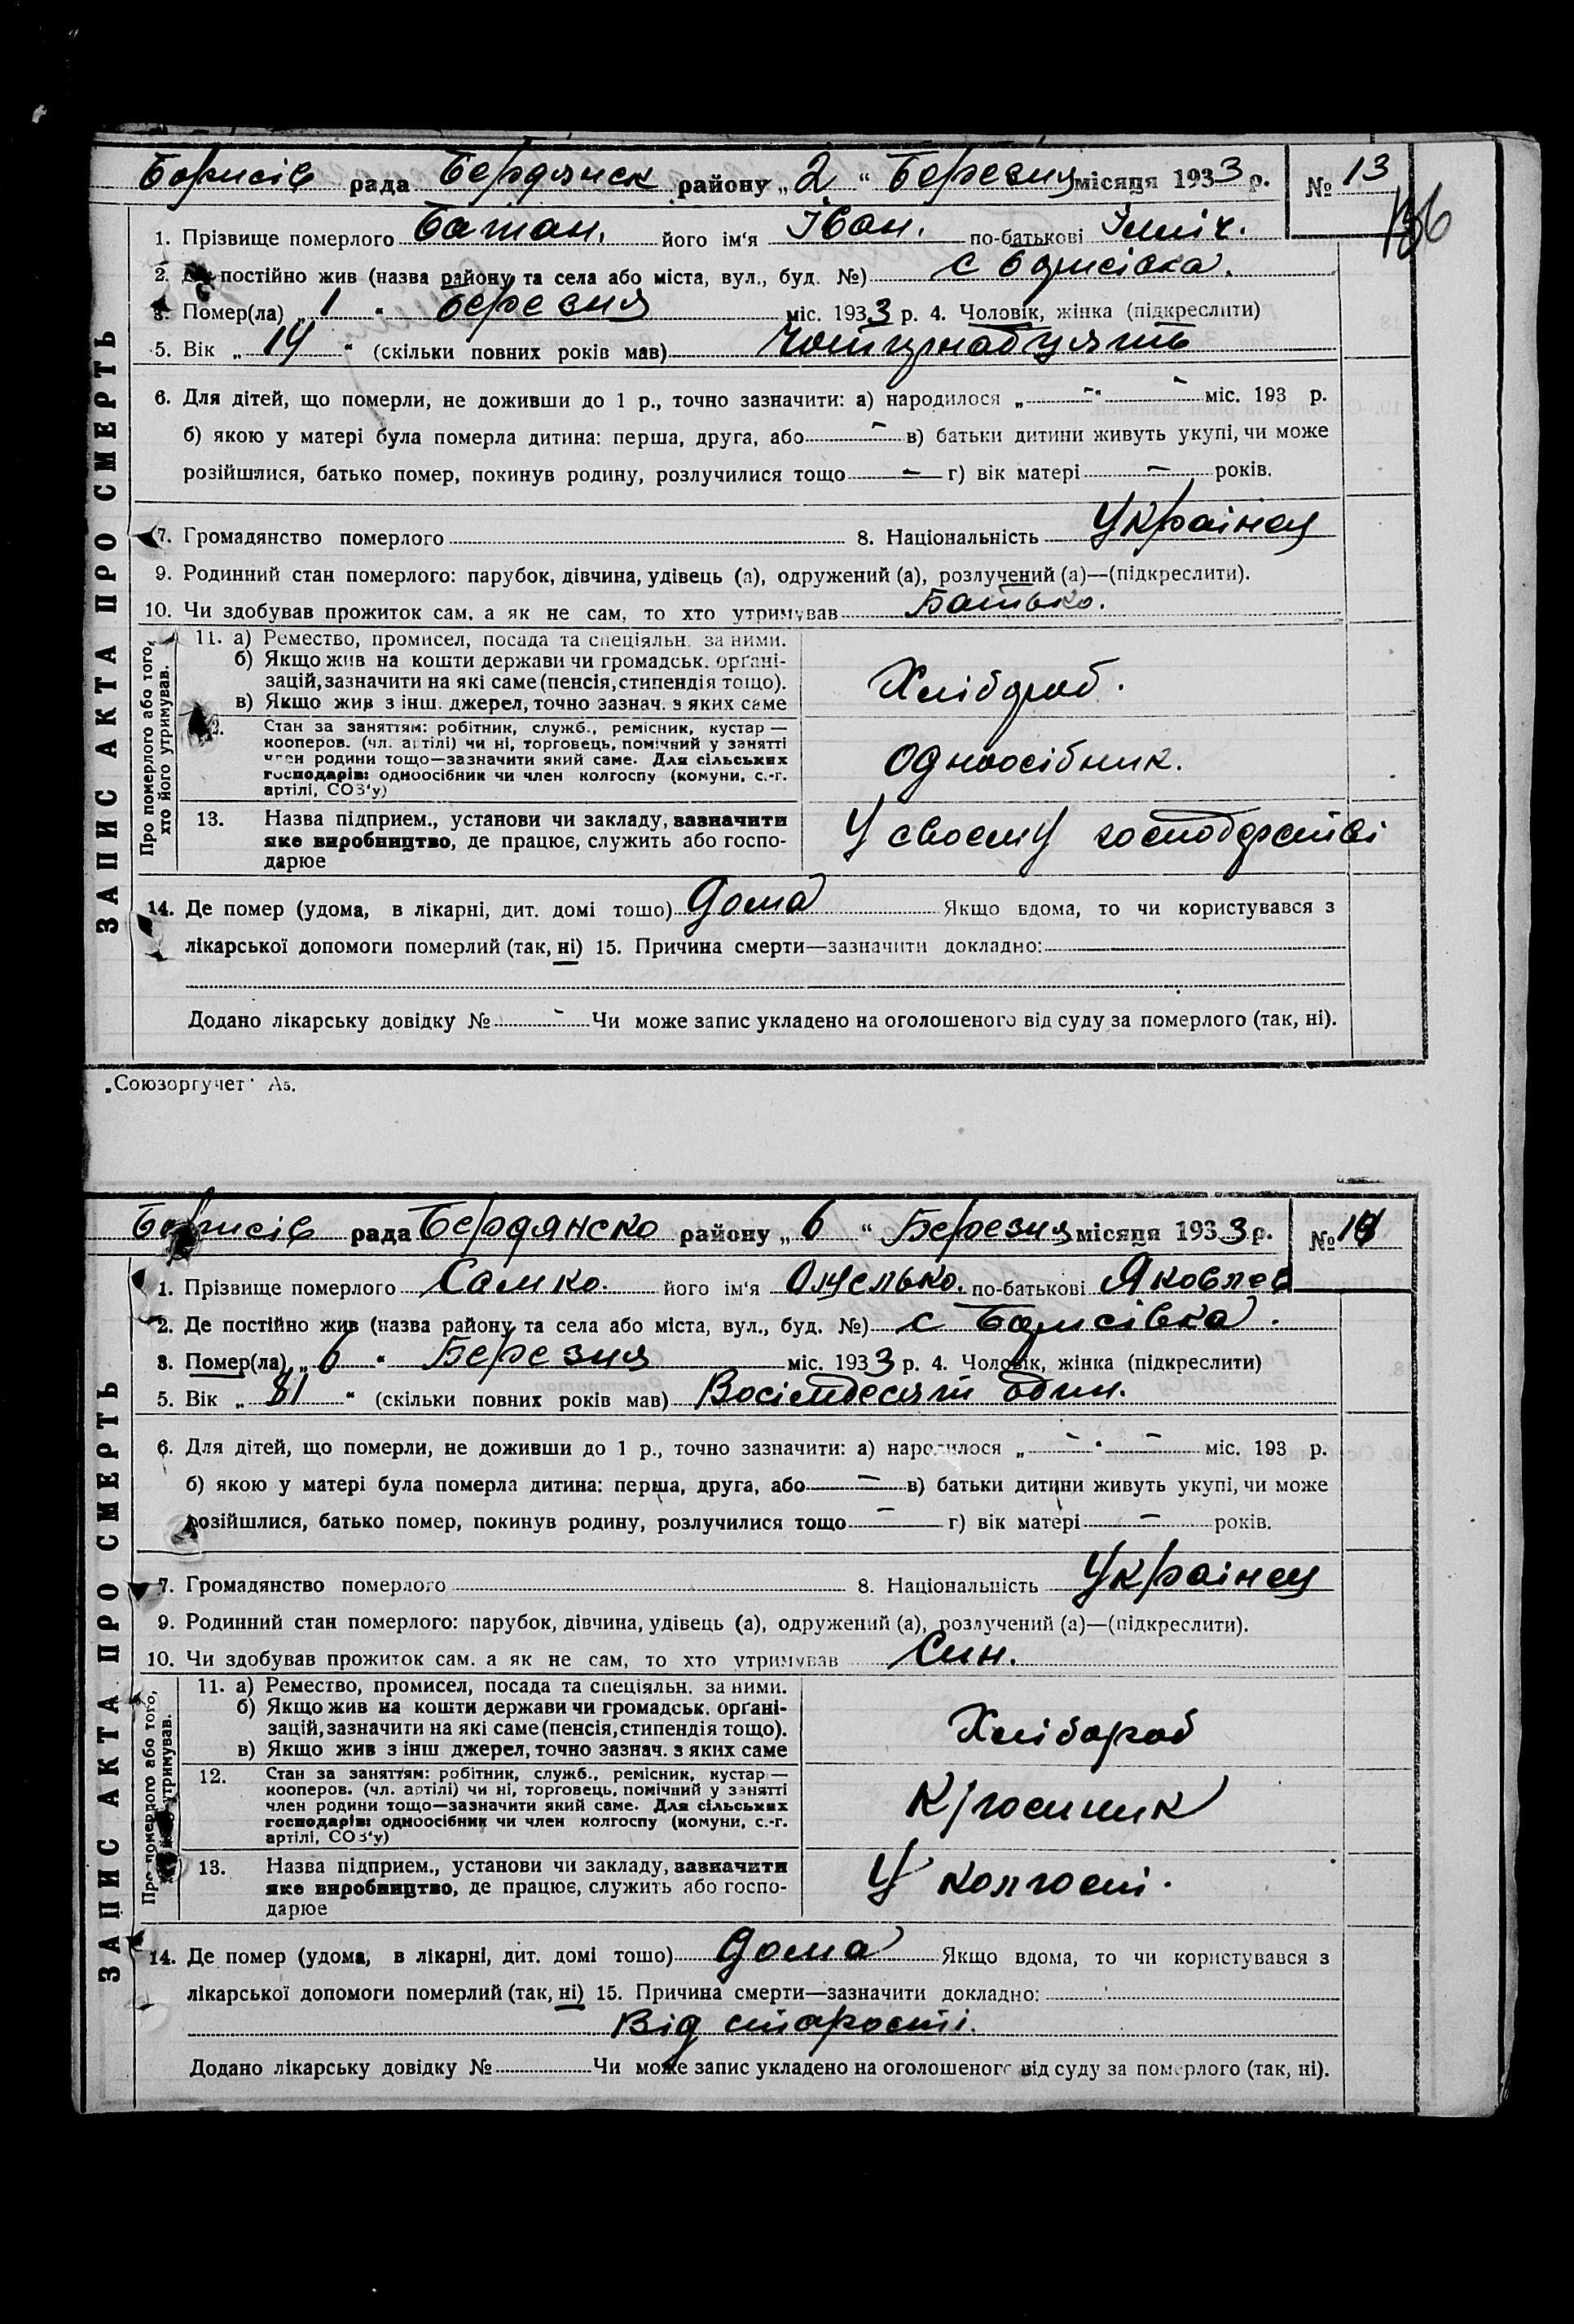 Борисів рада Бердянск району „2“ Березня місяця 1933 р. № 13
136
1. Прізвище померлого Баштан. його ім'я Іван. по-батькові Ілліч.
2. Де постійно жив (назва району та села або міста, вул., буд. №) с Борисівка.
3. Помер(ла) „1“ березня міс. 1933 р. 4. Чоловік, жінка (підкреслити)
5. Вік „14“ (скільки повних років мав) Чотирнадцять
6. Для дітей, що померли, не доживши до 1 р., точно зазначити: а) народилося „-“ - міс. 193 р.
б) якою у матері була померла дитина: перша, друга, або - в) батьки дитини живуть укупі, чи може
розійшлися, батько помер, покинув родину, розлучилися тощо - г) вік матері - років.
7. Громадянство померлого 8. Національність Українец
9. Родинний стан померлого: парубок, дівчина, удівець (а), одружений (а), розлучений (а)—(підкреслити).
10. Чи здобував прожиток сам, а як не сам, то хто утримував Батько.
11. а) Ремество, промисел, посада та спеціяльн. за ними.
б) Якщо жив на кошти держави чи громадськ. орґані-
зацій, зазначити на які саме (пенсія, стипендія тощо).
в) Якщо жив з інш. джерел, точно зазнач. з яких саме
Хлібороб.
12. Стан за заняттям: робітник, служб., ремісник, кустар —
кооперов. (чл. артілі) чи ні, торговець, помічний у занятті
член родини тощо—зазначити який саме. Для сільських
господарів: одноосібник чи член колгоспу (комуни, с.-г.
артілі, СОЗ'у)
Одноосібник.
13. Назва підприєм., установи чи закладу, зазначити
яке виробництво, де працює, служить або госпо-
дарює
У своєму господарстві
14. Де помер (удома, в лікарні, дит. домі тощо) Дома Якщо вдома, то чи користувався з
лікарської допомоги померлий (так, ні) 15. Причина смерти—зазначити докладно:
Додано лікарську довідку № - Чи може запис укладено на оголошеного від суду за померлого (так, ні).
ЗАПИС АКТА ПРО СМЕРТЬ
Про померлого або того,
хто його утримував.
„Союзоргучет“ А5.
Борисів рада Бердянско району „6“ Березня місяця 1933 р. № 14
1. Прізвище померлого Самко. його ім'я Омелько. по-батькові Яковлев
2. Де постійно жив (назва району та села або міста, вул., буд. №) с Борисівка.
3. Помер(ла) „6“ Березня міс. 1933 р. 4. Чоловік, жінка (підкреслити)
5. Вік „81“ (скільки повних років мав) Восімдесят один.
6. Для дітей, що померли, не доживши до 1 р., точно зазначити: а) народилося „-“ - міс. 193 р.
б) якою у матері була померла дитина: перша, друга, або - в) батьки дитини живуть укупі, чи може
розійшлися, батько помер, покинув родину, розлучилися тощо - г) вік матері - років.
7. Громадянство померлого 8. Національність Українец
9. Родинний стан померлого: парубок, дівчина, удівець (а), одружений (а), розлучений (а)—(підкреслити).
10. Чи здобував прожиток сам. а як не сам, то хто утримував Син.
11. а) Ремество, промисел, посада та спеціяльн. за ними.
б) Якщо жив на кошти держави чи громадськ. орґані-
зацій, зазначити на які саме (пенсія, стипендія тощо).
в) Якщо жив з інш джерел, точно зазнач. з яких саме
Хлібороб
12. Стан за заняттям: робітник, служб., ремісник, кустар —
кооперов. (чл. артілі) чи ні, торговець, помічний у занятті
член родини тощо—зазначити який саме. Для сільських
господарів: одноосібник чи член колгоспу (комуни, с.-г.
артілі, СОЗ'у)
13. Назва підприєм., установи чи закладу, зазначити
яке виробництво, де працює, служить або госпо-
дарює
У колгоспі.
14. Де помер (удома, в лікарні, дит. домі тошо) Дома Якщо вдома, то чи користувався з
лікарської допомоги померлий (так, ні) 15. Причина смерти—зазначити докладно:
Від старости.
Додано лікарську довідку № Чи може запис укладено на оголошеного від суду за померлого (так, ні).
ЗАПИС АКТА ПРО СМЕРТЬ
Про померлого або того,
утримував.